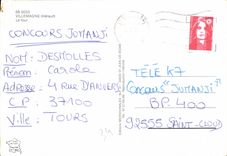 VILLEMAGNE (Hérault)
CONCOURS JUMANJI
Nom: DESTOLLES
Prénom: Carole
Adresse: 4 Rue D'ANVERS
C.P: 37100
Ville: TOURS
TÉLÉ K7
Concours "JUMANJI"
BP. 400
92555 SAINT-CLOUD